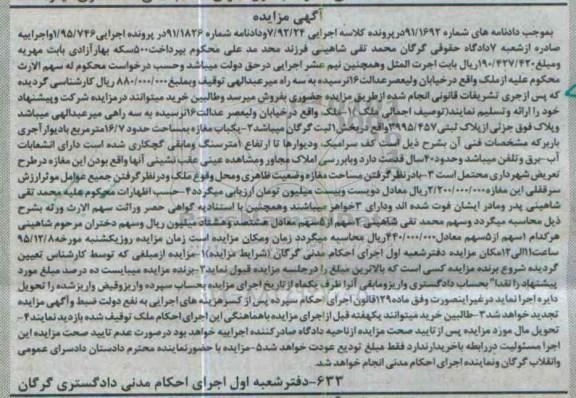 آگهی مزایده
بموجب دادنامه های شماره ۹۱/۱۶۹۲درپرونده کلاسه اجرایی ۷/۹۲/۲۴ودادنامه شماره ۹۱/۱۸۲۶در پرونده اجرایی۱/۹۵/۷۴۶واجراییه
صادره ازشعبه ۷دادگاه حقوقی گرگان محمد تقی شاهینی فرزند محد مد علی محکوم بپرداخت۵۰۰سکه بهارآزادی بابت مهریه
ومبلغ۱۹۰/۴۲۷/۴۲۰ریال بابت اجرت المثل وهمچنین نیم عشر اجرایی درحق دولت میباشد وحسب درخواست محکوم له سهم الارث
محکوم علیه ازملک واقع درخیابان ولیعصر عدالت۱۶نرسیده به سه راه میرعبدالهی توقیف وبمبلغ۸۸۰/۰۰۰/۰۰۰ ریال کارشناسی گردیده
که پس ازجری تشریفات قانونی انجام شده ازطریق مزایده حضوری بفروش میرسد وطالبین خرید میتوانند درمزایده شرکت وپیشنهاد
خود را ارائه و تسلیم نمایند(توصیف اجمالی ملک)۱-ملک واقع درخیابان ولیعصر عدالت۱۶نرسیده به سه راهی میرعبدالهی میباشد
وپلاک فوق جزئی ازپلاک ثبتی۳۹۹۵/۴۵۷واقع دربخش۱ثبت گرگان میباشد۲-یکباب مغازه بمساحت حدود ۱۶/۷مترمربع بادیوارآجری
باربرکه مشخصات فنی آن بشرح ذیل است کف سرامیک ودیوارها تا ارتفاع ۱مترسنگ ومابقی گچکاری شده است دارای انشعابات
آب-برق وتلفن میباشد وحدود۴۰سال قدمت دارد وبابررسی املاک مجاور ومشاهده عینی عقب نشینی آنها واقع بودن این مغازه درطرح
تعریض شهرداری محتمل است ۳-بادرنظرگرفتن مساحت مغازه وضعیت ظاهری ومحل وقوع ملک ودرنظرگرفتن جمیع عوامل موثرارزش
سرقفلی این مغازه۲/۲۰۰/۰۰۰/۰۰۰ریال معادل دویست وبیست میلیون تومان ارزیابی میگردد۴-حسب اظهارات محکوم علیه محمد تقی
شاهینی پدر ومادر ایشان فوت شده اند ودارای ۳خواهر میباشند وهمچنین با استنادبه گواهی حصر وراثت سهم الارث ورثه بشرح
ذیل محاسبه میگردد وسهم محمد تقی شاهینی ۲سهم از۵سهم معادل هشتصد وهشتاد میلیون ریال وسهم دختران مرحوم شاهینی
هرکدام ۱سهم از۵سهم معادل۴۴۰/۰۰۰/۰۰۰ریال محاسبه میگردد زمان ومکان مزایده است زمان مزایده روزیکشنبه مورخه۹۵/۱۲/۸
ساعت۱۱الی۱۲مکان مزایده دفترشعبه اول اجرای احکام مدنی گرگان (شرایط مزایده)۱-مزایده ازمبلغی که توسط کارشناس تعیین
گردیده شروع برنده مزایده کسی است که بالاترین مبلغ را درجلسه مزایده قبول نماید۲-برنده مزایده میبایست ده درصد مبلغ مورد
پیشنهاد را نقدا" بحساب دادگستری واریزومابقی آنرا ظرف یکماه از تاریخ اجرای مزایده بحساب سپرده واریزوقبض واریزشده را تحویل
دایره اجرا نماید درغیراینصورت وفق ماده۱۲۹قانون اجرای احکام سپرده پس از کسرهزینه های اجرایی به نفع دولت ضبط وآگهی مزایده
تجدید خواهد شد۳-طالبین خرید میتوانند یکهفته قبل ازاجرای مزایده باهماهنگی این اجرای احکام ملک توقیف شده بازدید نمایند۴-
تحویل مال مورد مزایده پس از تایید صحت مزایده ازناحیه دادگاه صادرکننده اجراییه خواهد بود درصورت عدم تایید صحت مزایده این
اجرا مسئولیت دررابطه باخریدارندارد فقط مبلغ تودیع عودت خواهد شد۵-مزایده با حضورنماینده محترم دادستان دادسرای عمومی
وانقلاب گرگان ونماینده اجرای احکام مدنی انجام خواهد شد.
۶۳۳-دفترشعبه اول اجرای احکام مدنی دادگستری گرگان